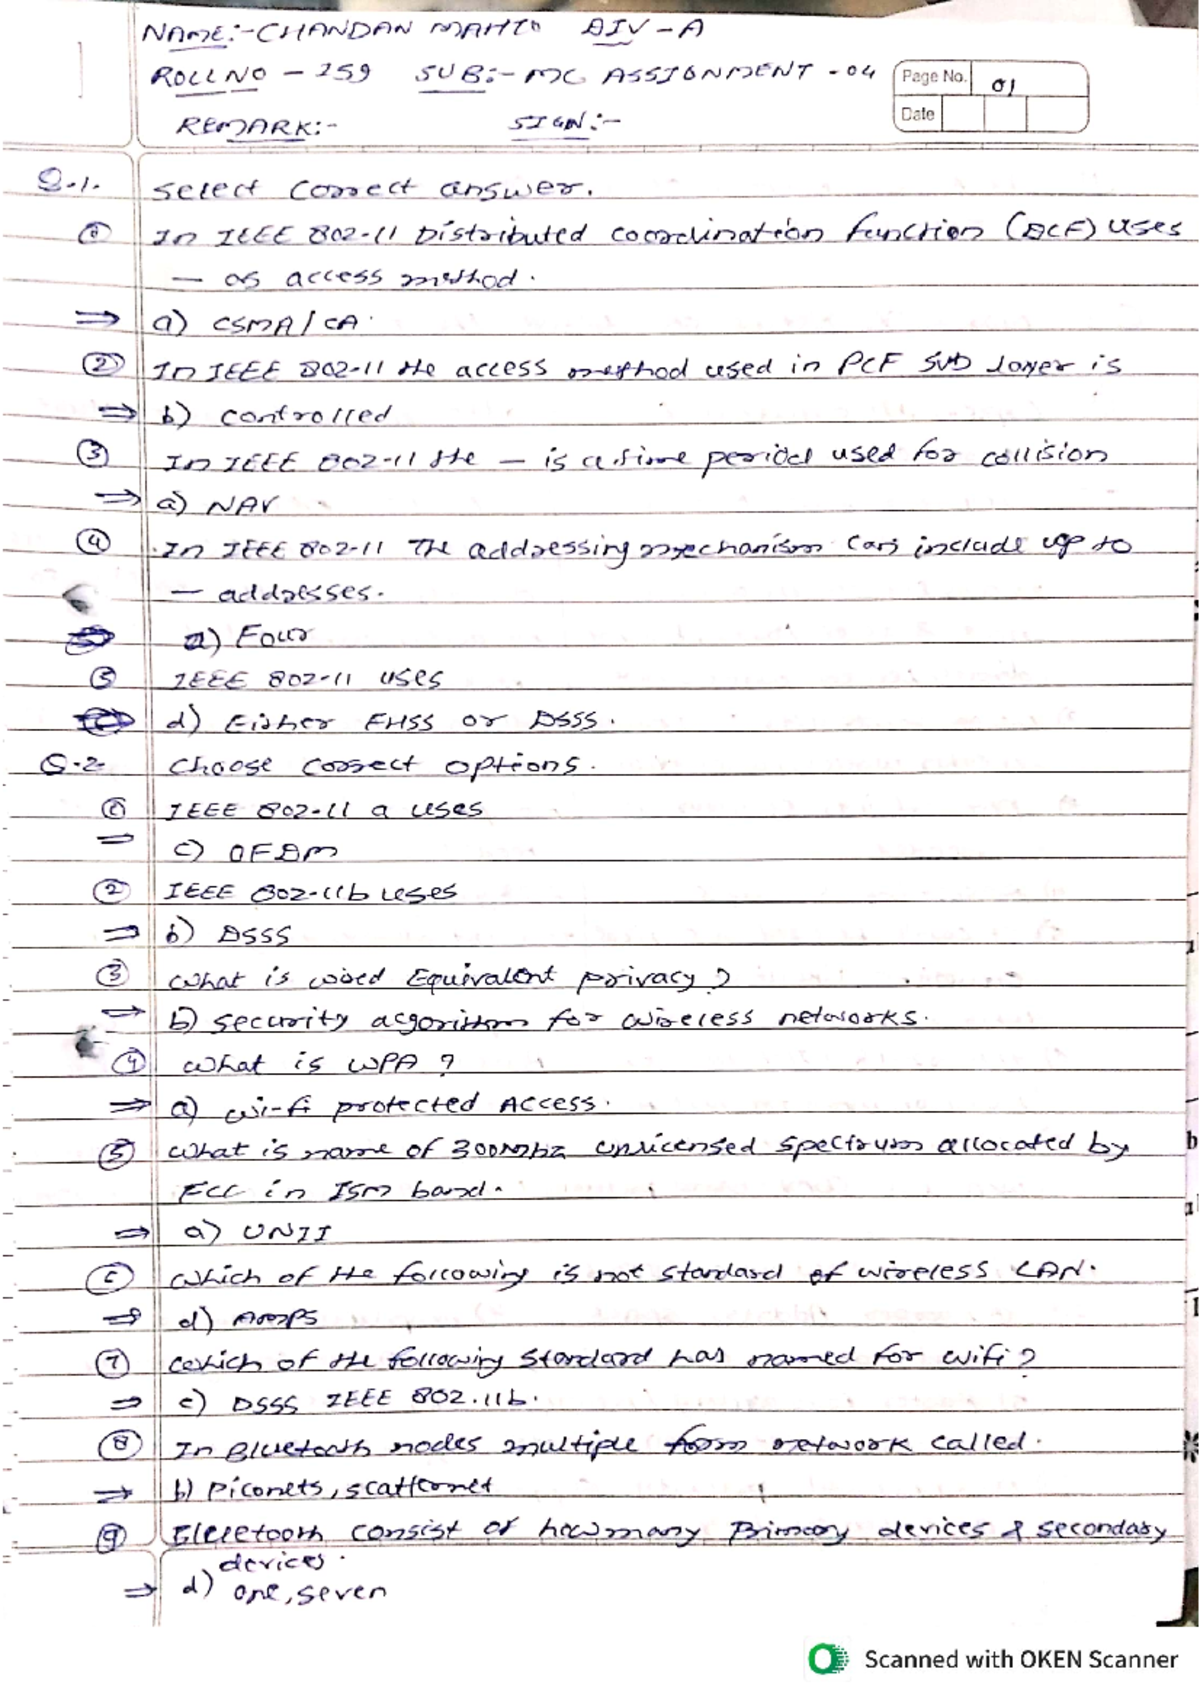 NAME:- CHANDAN MAHTO DIV - A
ROLL NO - 159 SUB:- MC ASSIGNMENT - 04
Page No. 01
Date
REMARK:- SIGN:-
Q.1. Select Correct answer.
① In IEEE 802-11 Distributed coordination function (DCF) uses
— as access method.
⇒ a) CSMA / CA.
② In IEEE 802-11 the access method used in PCF SUD layer is
⇒ b) controlled
③ In IEEE 802-11 the — is a time period used for collision
⇒ a) NAV
④ In IEEE 802-11 The addressing mechanism can include up to
— addresses.
a) Four
⑤ IEEE 802-11 uses
d) Either FHSS or DSSS.
Q.2. Choose correct options.
① IEEE 802-11 a uses
⇒ c) OFDM
② IEEE 802-11b uses
⇒ b) DSSS
③ What is wired Equivalent privacy?
⇒ b) security algorithm for wireless networks.
④ What is WPA ?
⇒ a) wi-fi protected Access.
⑤ What is name of 300Mhz unlicensed spectrum allocated by
FCC in ISM band.
⇒ a) UNII
⑥ Which of the following is not standard of wireless LAN.
⇒ d) AMPS
⑦ Which of the following standard has named for wifi?
⇒ c) DSSS IEEE 802.11b.
⑧ In Bluetooth nodes multiple form network called.
⇒ b) Piconets, scatternet
⑨ Bluetooth consist of how many Primary devices & secondary
devices.
⇒ d) one, seven
Scanned with OKEN Scanner